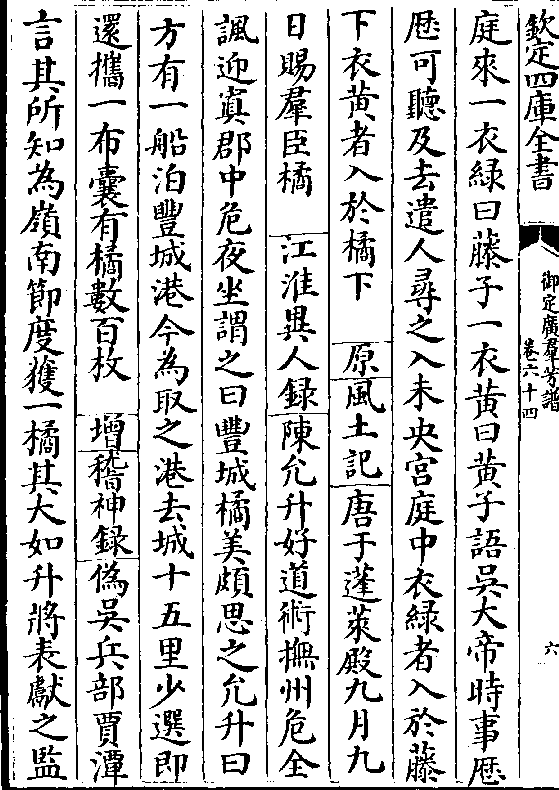 欽定四庫全書
御定廣羣芳譜
卷六十四
六
庭來一衣綠曰藤子一衣黄曰黄子語吳大帝時事歴
歴可聽及去遣人尋之入未央宫庭中衣綠者入於藤
下衣黄者入於橘下 原風土記唐于蓬萊殿九月九
日賜羣臣橘 江淮異人録陳允升好道術撫州危全
諷迎寘郡中危夜坐謂之曰豐城橘美頗思之允升曰
方有一船泊豐城港今為取之港去城十五里少選即
還攜一布囊有橘數百枚 增稽神録偽吳兵部賈潭
言其所知為嶺南節度獲一橘其大如升將表獻之監